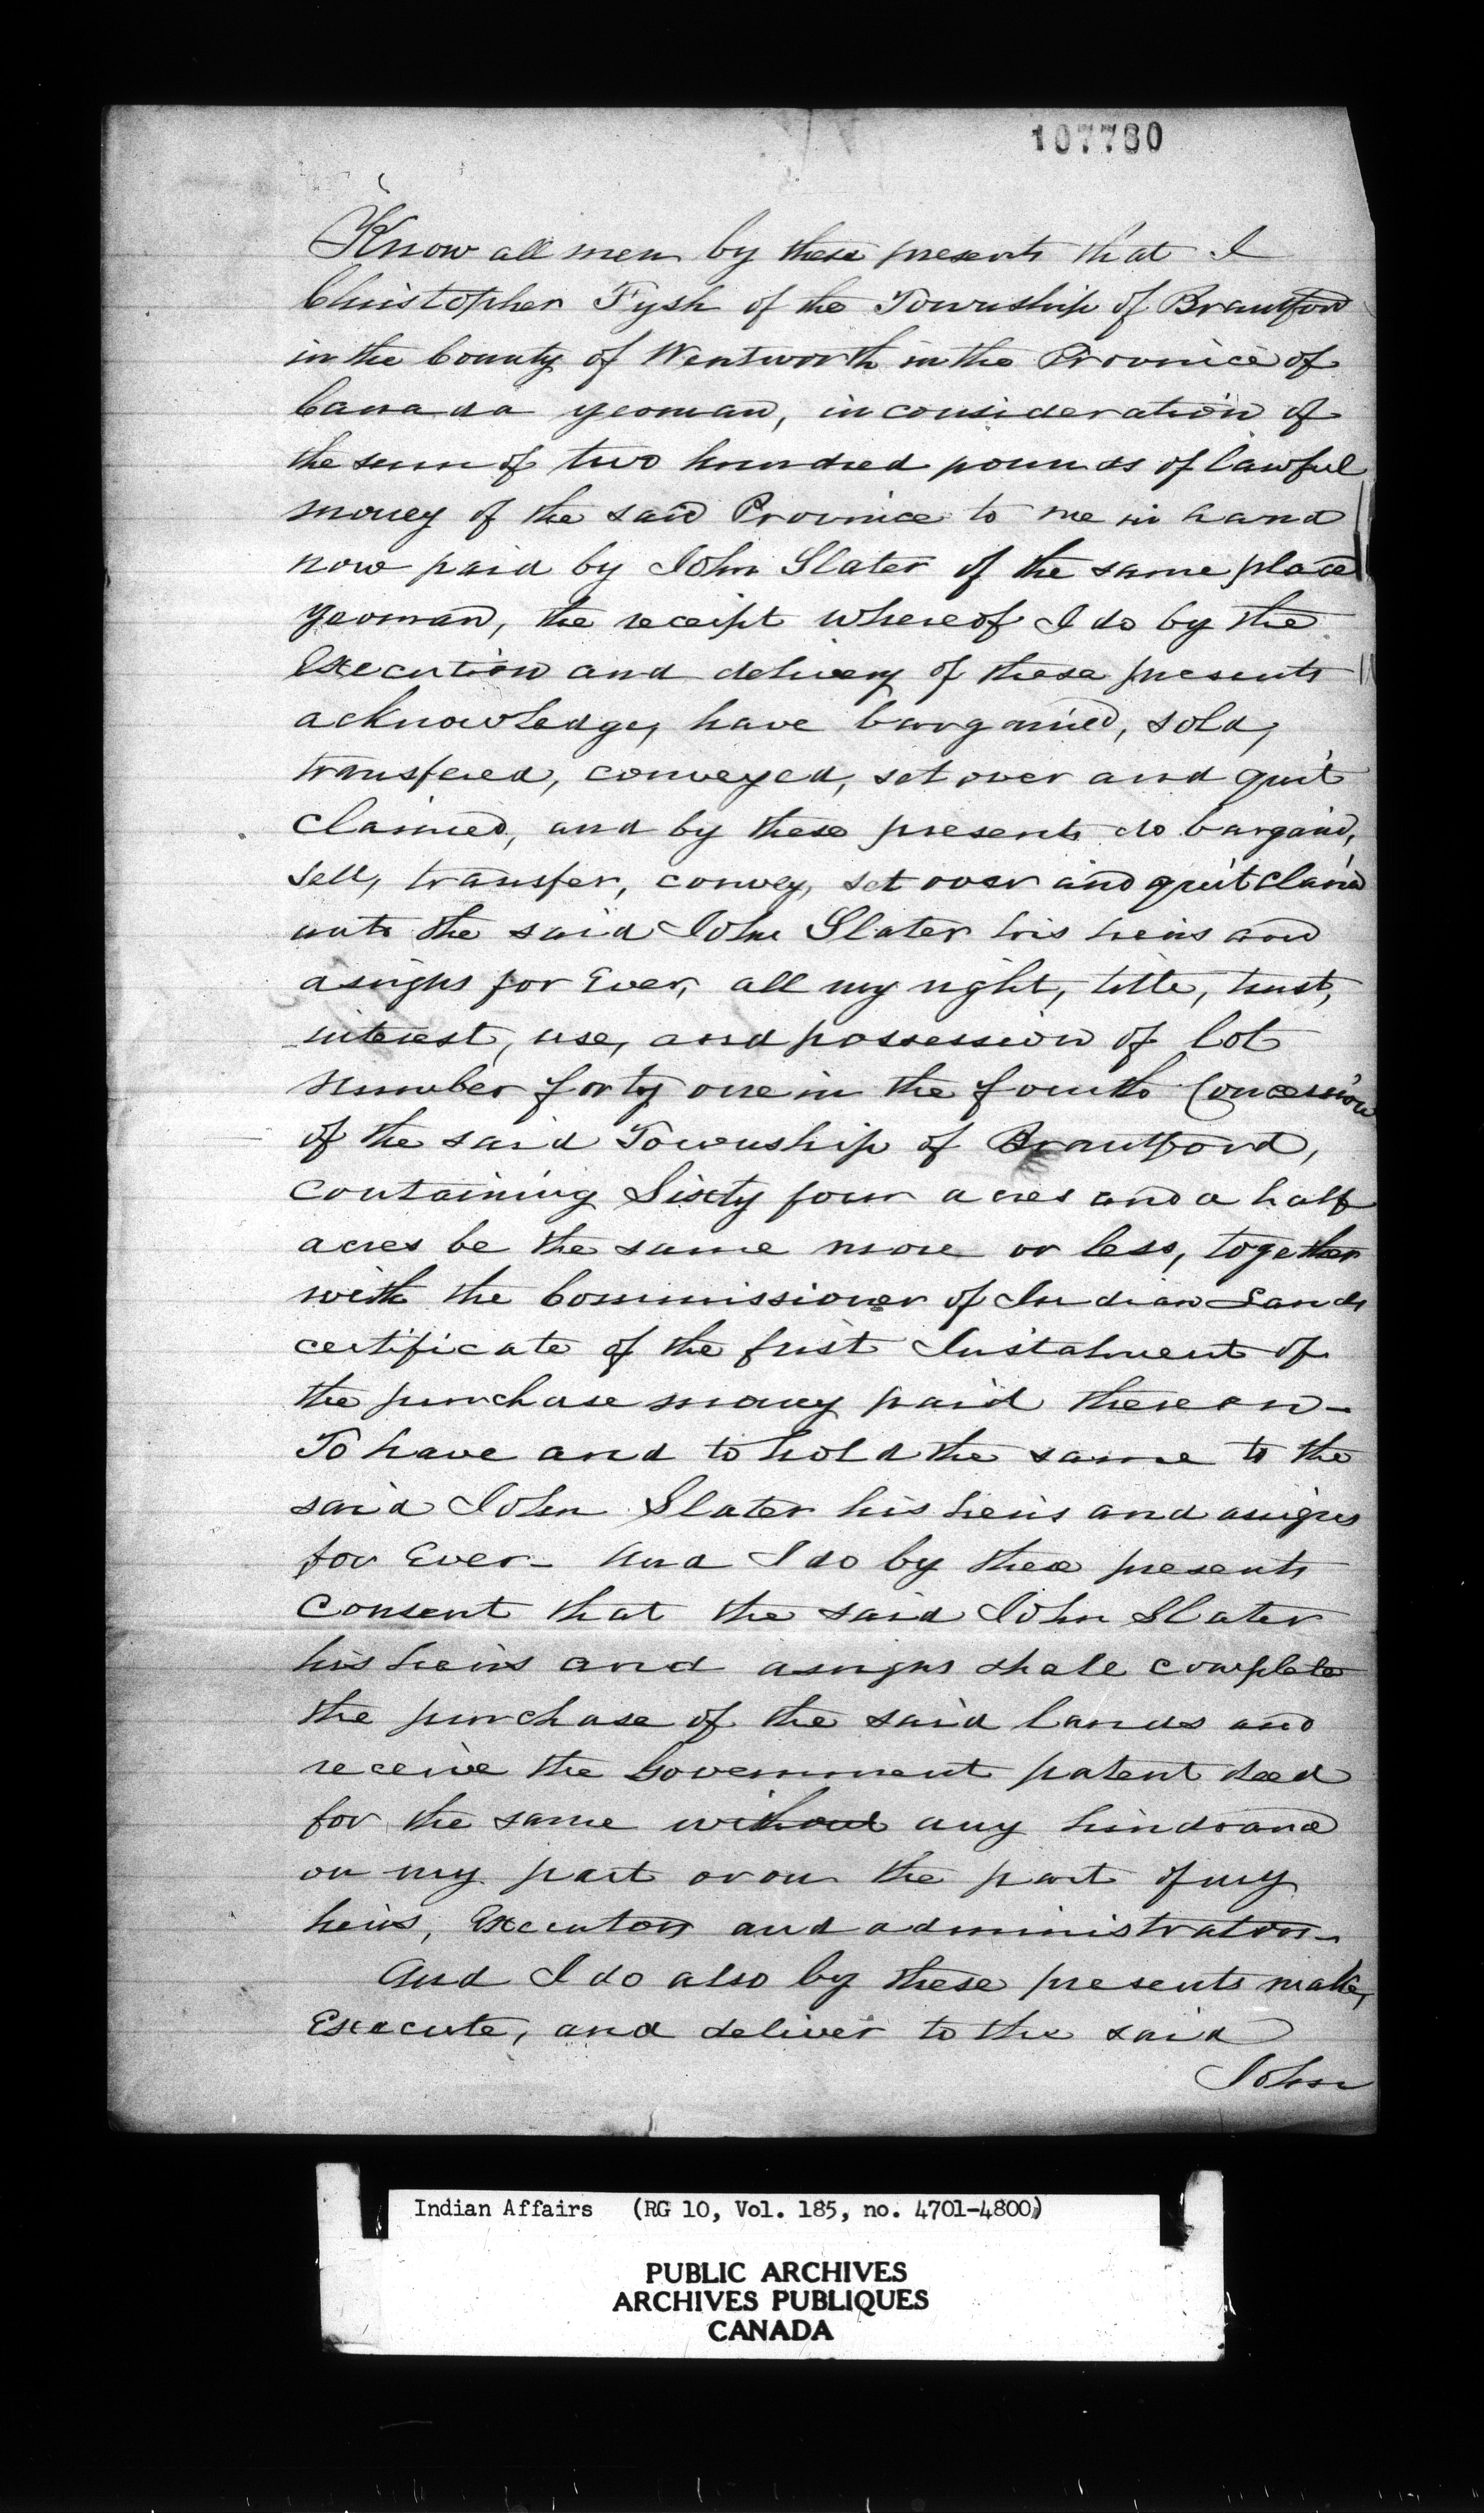 107780
Know all men by these presents that I
Christopher Fysh of the Township of Brantford
in the County of Wentworth in the Province of
Canada yeoman, in consideration of
the sum of two hundred pounds of lawful
money of the said Province to me in hand
now paid by John Slater of the same place
yeoman, the receipt whereof I do by the
Execution and delivery of these presents
acknowledge, have bargained, sold,
transfered, conveyed, set over and quit
claimed, and by these presents do bargain,
sell, transfer, convey, set over and quit claim
unto the said John Slater his heirs and
asigns for Ever, all my right, title, trust,
interest, use, and possession of lot
number forty one in the fourth Concession
of the said Township of Brantford,
containing Sixty four acres and a half
acres be the same more or less, together
with the Commissioner of Indian Lands
certificate of the first Instalment of
the purchase money paid thereon_
To have and to hold the same to the
said John Slater his heirs and asigns
for Ever_ And I do by these presents
consent that the said John Slater
his heirs and asigns shall complete
the purchase of the said lands and
receive the Government patent deed
for the same without any hindrance
on my part or on the part of my
heirs, Executors and administrators_
And I do also by these presents make,
Execute, and deliver to the said
John
Indian Affairs (RG 10, Vol. 185, no. 4701-4800)
PUBLIC ARCHIVES
ARCHIVES PUBLIQUES
CANADA